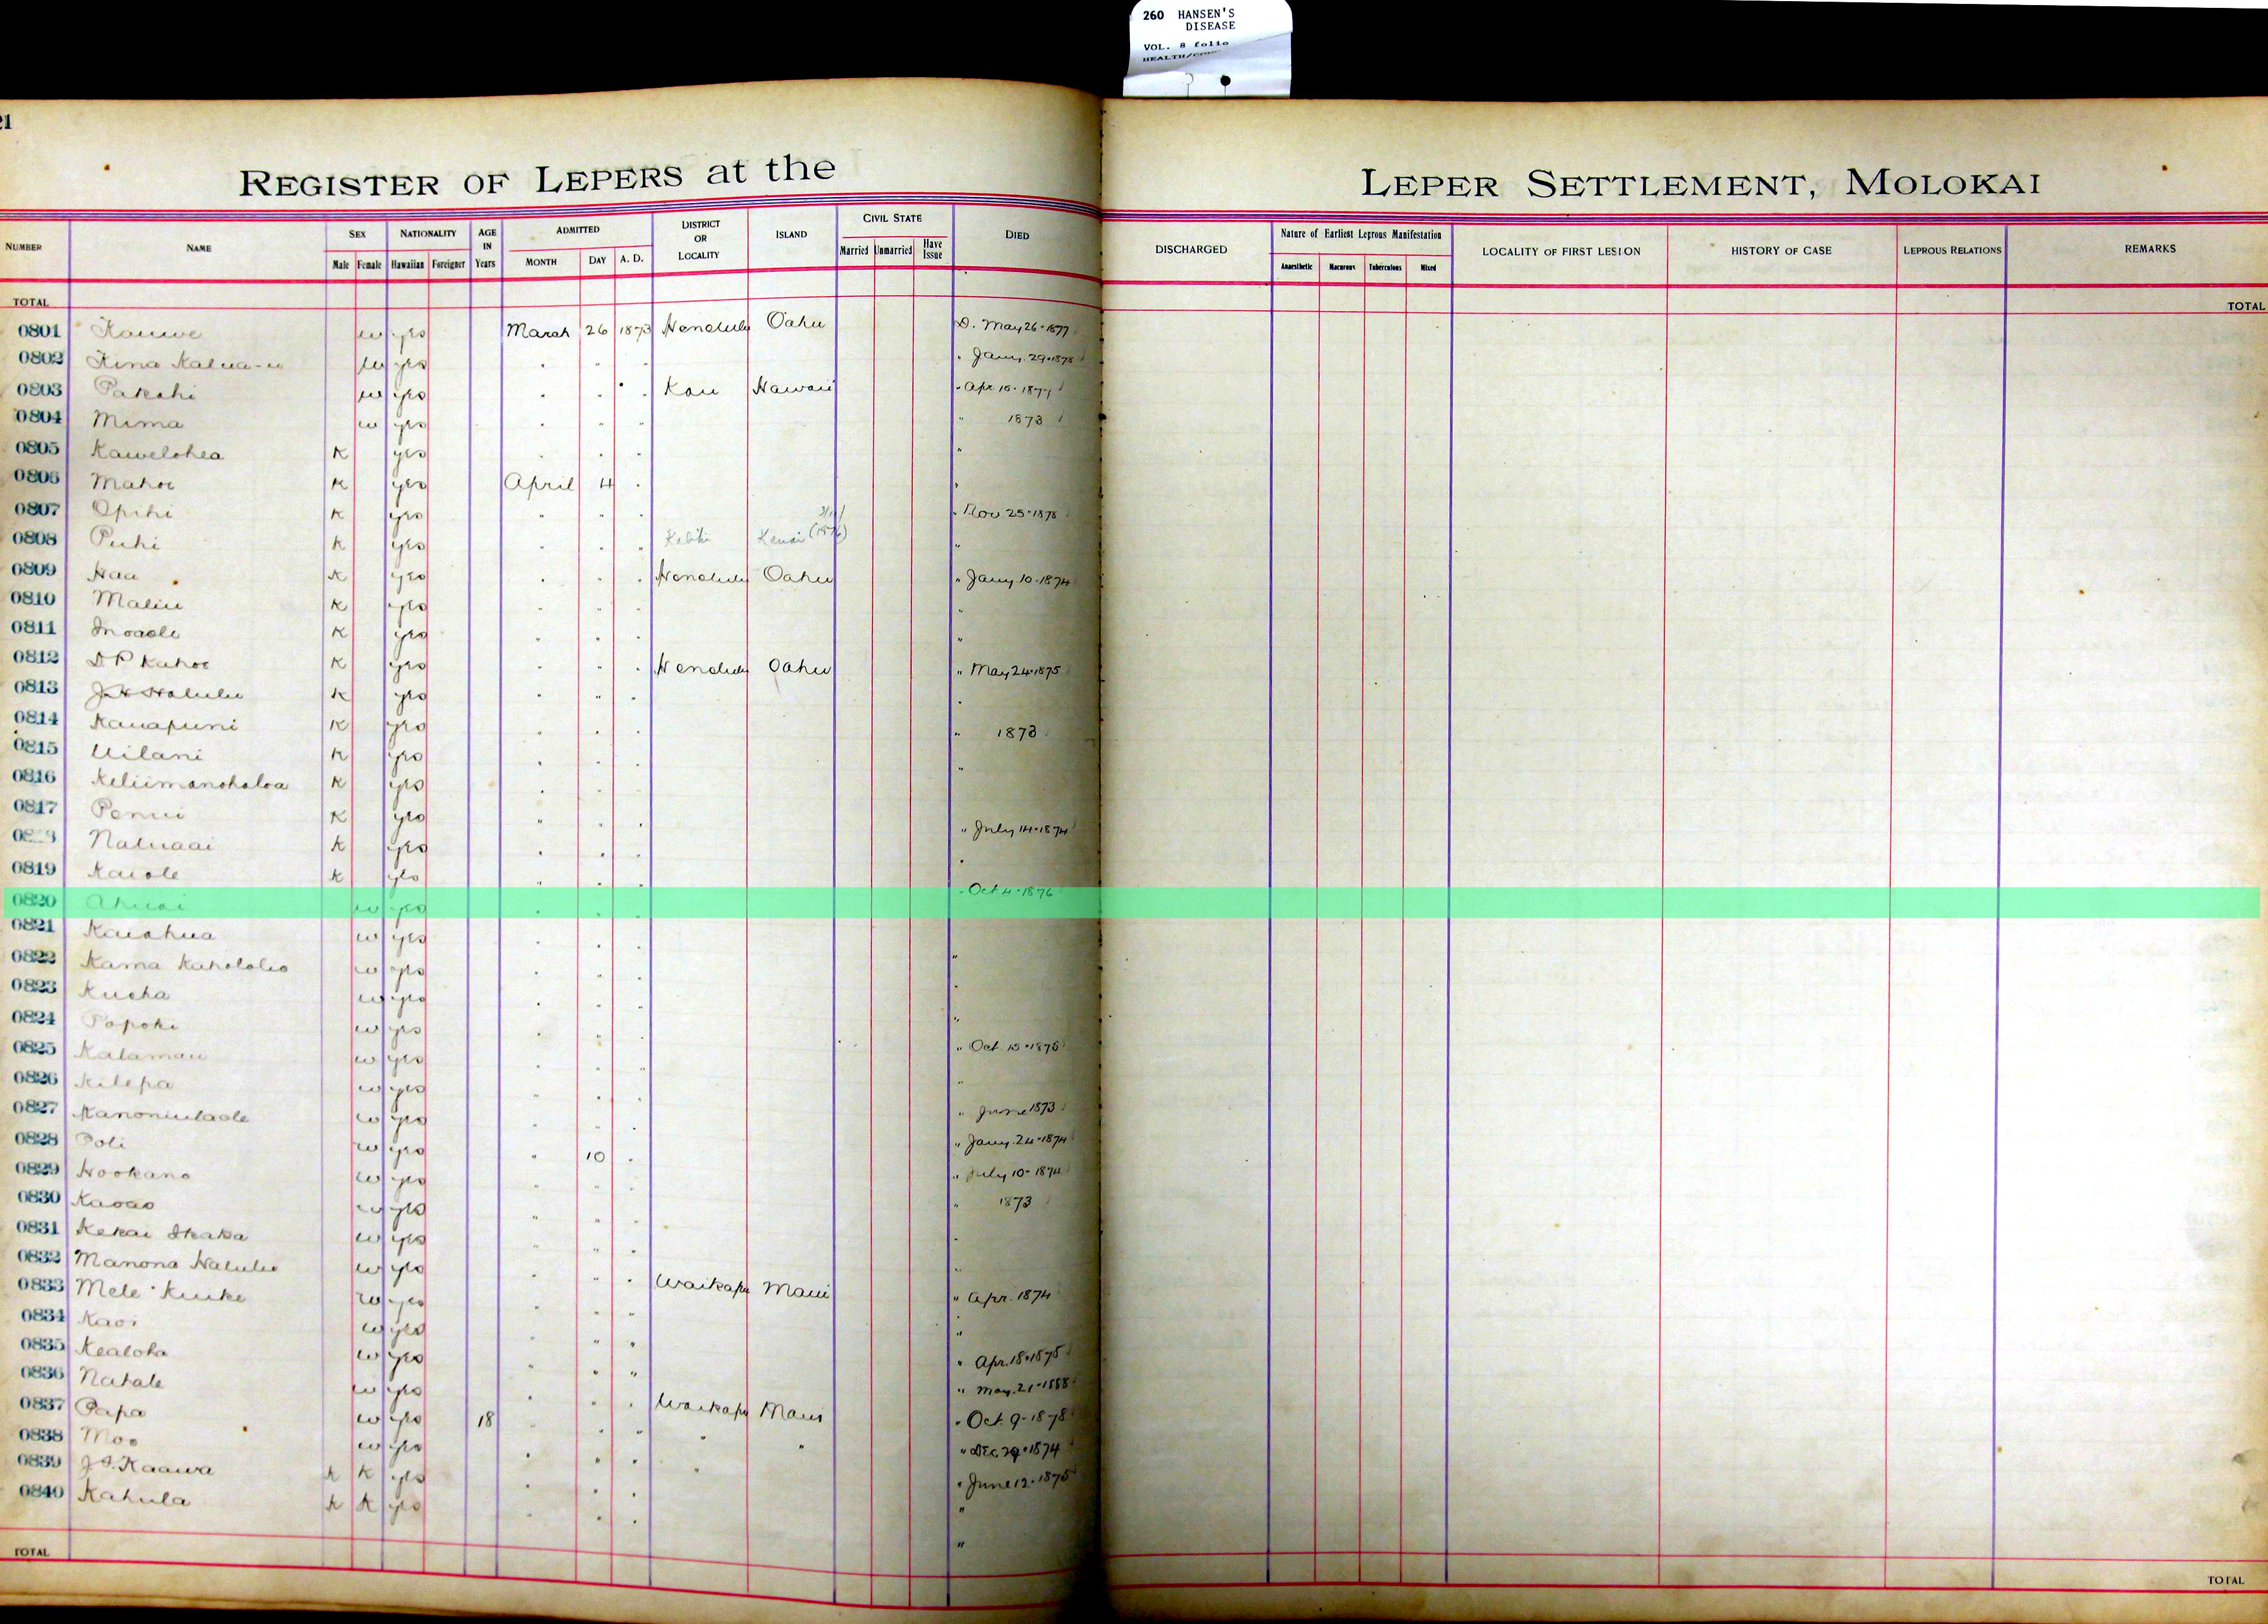 260 HANSEN'S
DISEASE
VOL. 8 folio
21
REGISTER OF LEPERS at the LEPER SETTLEMENT, MOLOKAI
NUMBER NAME SEX Male Female NATIONALITY Hawaiian Foreigner AGE IN Years ADMITTED MONTH DAY A. D. DISTRICT OR LOCALITY ISLAND CIVIL STATE Married Unmarried Have Issue DIED DISCHARGED Nature of Earliest Leprous Manifestation Anaesthetic Macurous Tuberculous Mixed LOCALITY OF FIRST LESION HISTORY OF CASE LEPROUS RELATIONS REMARKS
TOTAL TOTAL
0801 Kauwe w yes March 26 1873 Honolulu Oahu D. May 26-1877
0802 Kina Kalua-u w yes " " " " Jany. 29-1878
0803 Pakahi w yes " " " Kau Hawaii " Apr 10-1877
0804 Mima w yes " " " " 1873
0805 Kawelohea K yes " " " "
0806 Mahoe K yes April 4 " "
0807 Opihi K yes " " " " Nov 25-1878
0808 Puhi K yes " " " Kalihi Kauai (1876) "
0809 Haa K yes " " " Honolulu Oahu " Jany 10-1874
0810 Maliu K yes " " " "
0811 Inoaole K yes " " " "
0812 D P Kahoe K yes " " " Honolulu Oahu " May 24-1875
0813 J H Halulu K yes " " " "
0814 Kauapuni K yes " " " " 1873
0815 Uilani K yes " " " "
0816 Keliimanohaloa K yes " " "
0817 Penui K yes " " " " July 14-1874
Naluaai K yes " " " "
0819 Kaiole K yes " " " " Oct 4-1876
0820 Ahuai w yes " " "
0821 Kaiahua w yes " " " "
0822 Kama Kahololio w yes " " " "
0823 Kueha w yes " " " "
0824 Popoki w yes " " " " Oct. 15-1878
0825 Kalamau w yes " " " "
0826 Kilepa w yes " " " " June 1873
0827 Kanoniulaole w yes " " " " Jany. 24-1874
0828 Poli w yes " 10 " " July 10-1874
0829 Hookano w yes " " " " 1873
0830 Kaoao w yes " " " "
0831 Kekai Ikaka w yes " " " "
0832 Manona Halulu w yes " " " Waikapu Maui " Apr. 1874
0833 Mele Kuike w yes " " " "
0834 Kaoi w yes " " " " Apr. 18-1875
0835 Kealoha w yes " " " " May. 21-1888
0836 Nahale w yes " " " Waikapu Maui " Oct. 9-1878
0837 Papa w yes 18 " " " " " " Dec 29-1874
0838 Moo w yes " " " " " June 12-1875
0839 J. I. Kaawa K K yes " " " "
0840 Kahula K K yes " " " "
TOTAL TOTAL